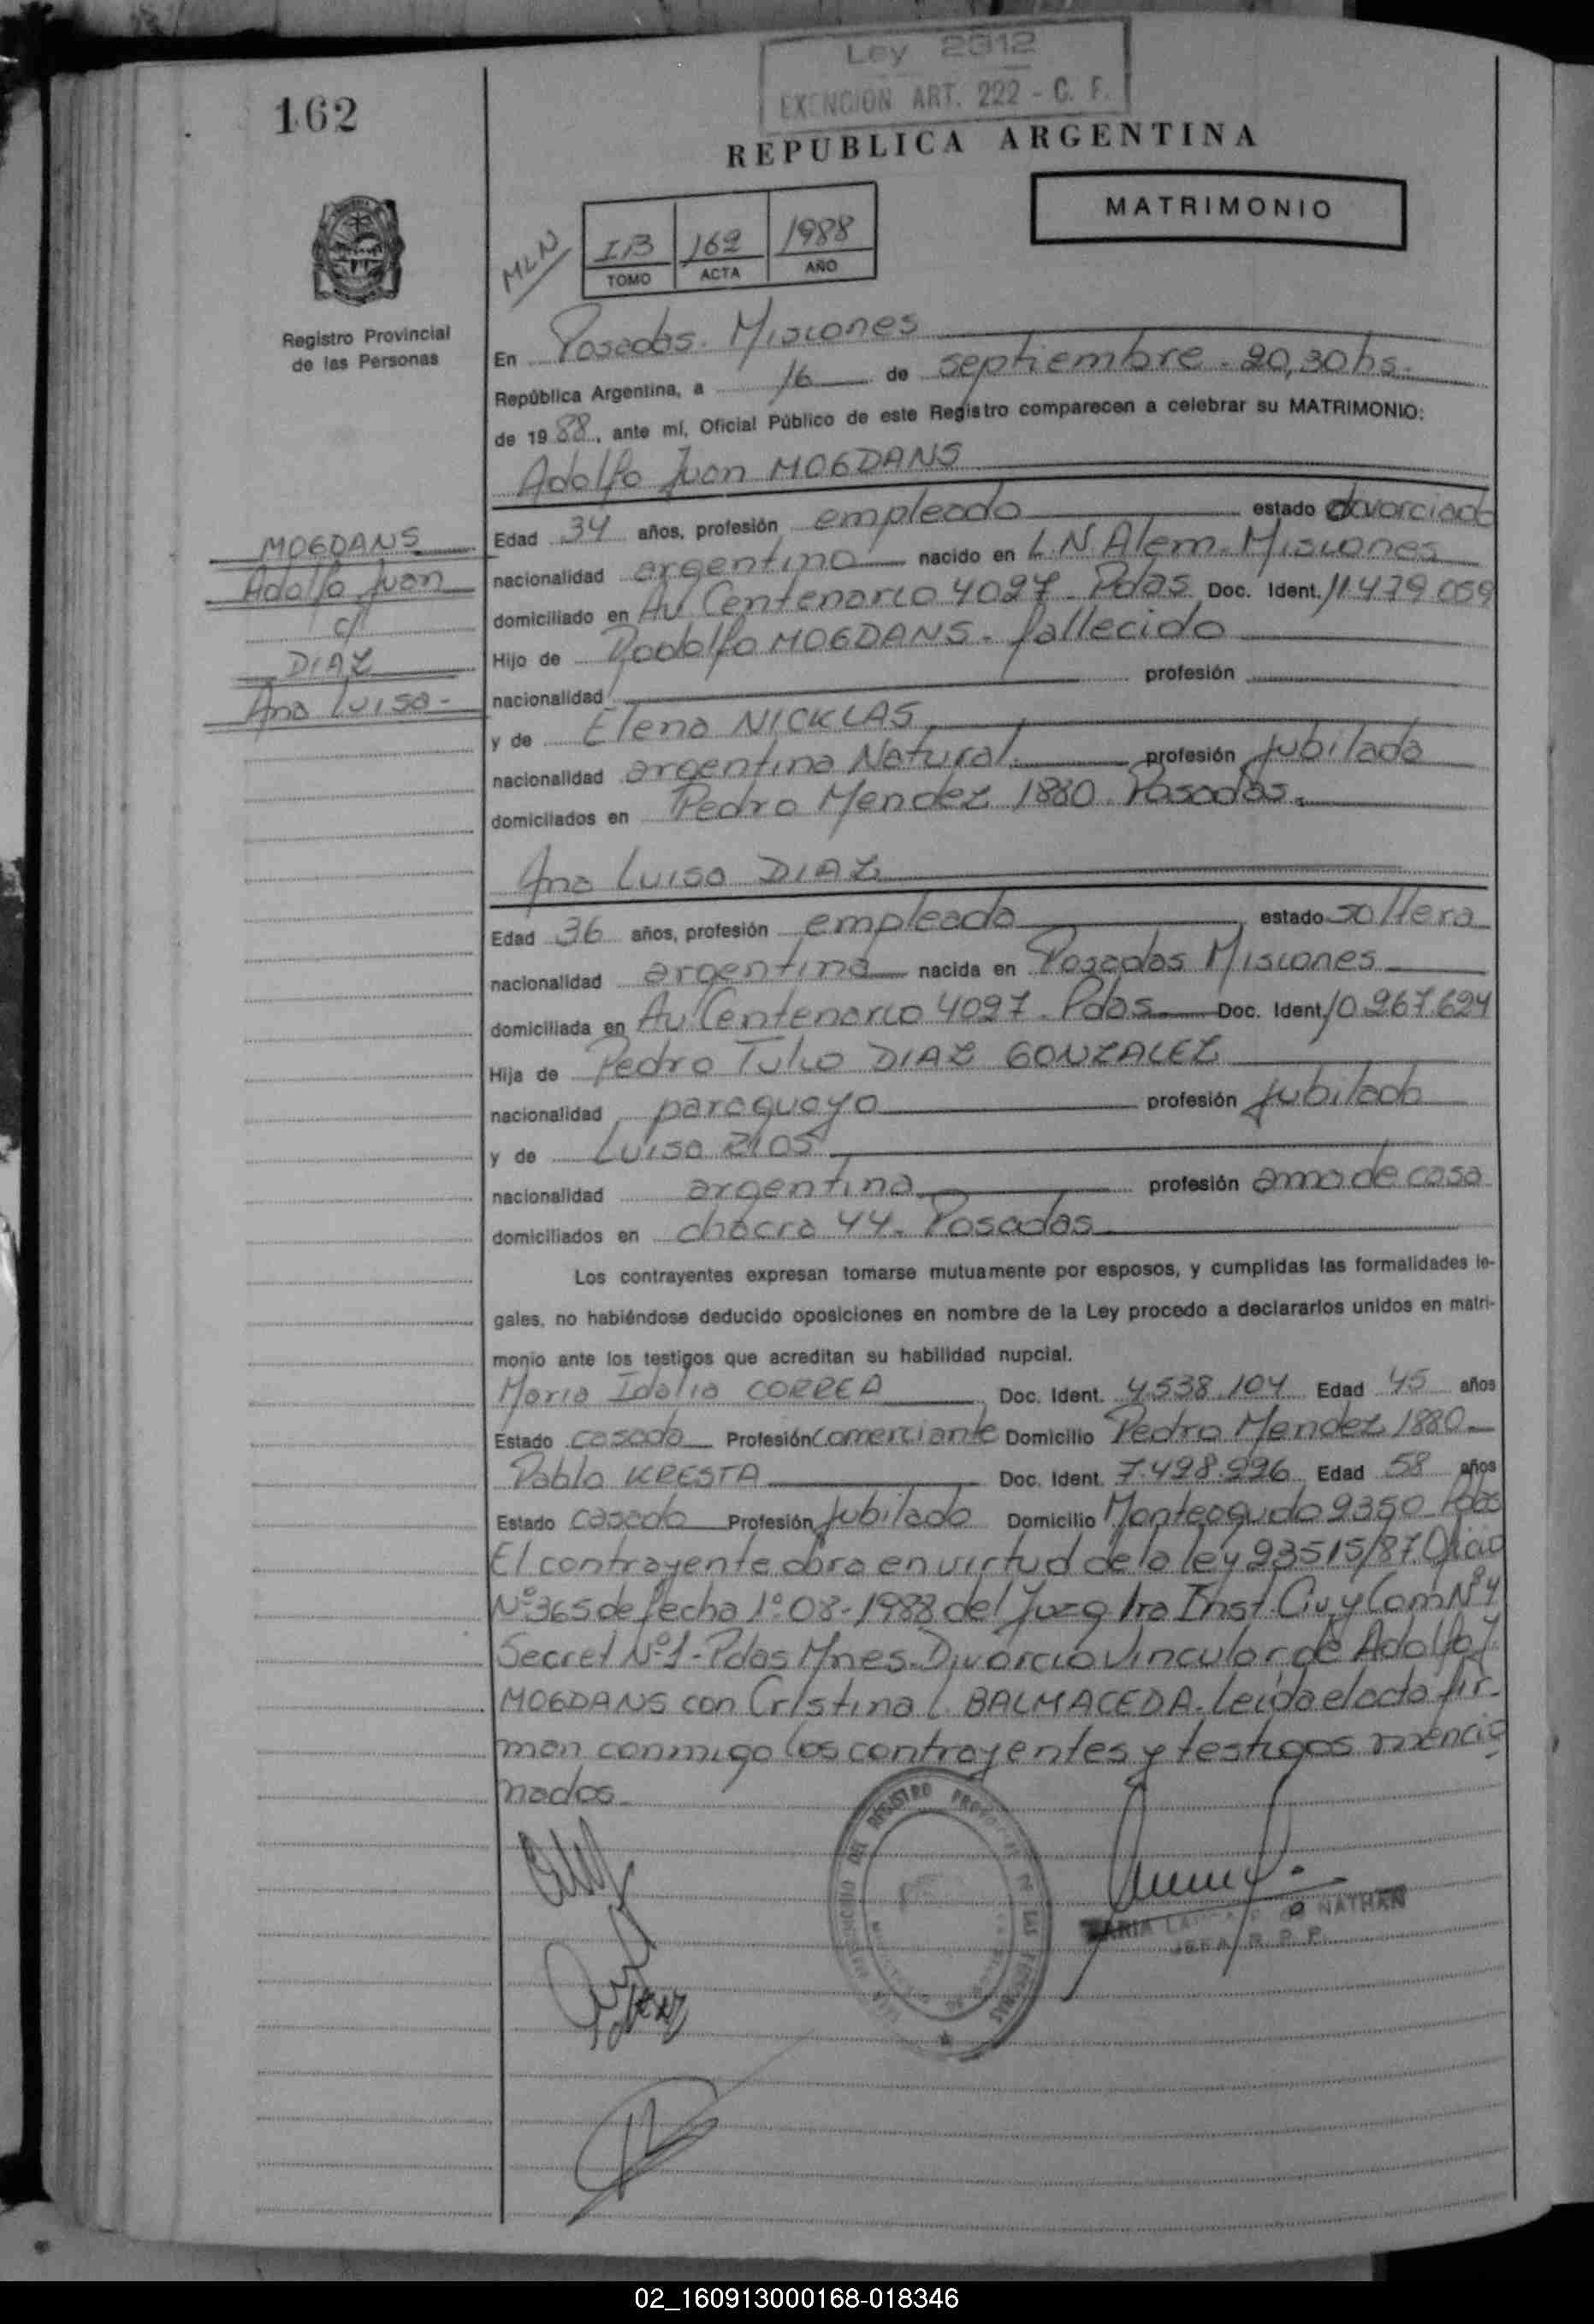 Ley 2312
EXENCION ART. 222 - C. F.
162
REPUBLICA ARGENTINA
MATRIMONIO
MLN
IB 162 1988
TOMO ACTA AÑO
Registro Provincial
de las Personas
En Posadas. Misiones
República Argentina, a 16 de septiembre. 20,30 hs.
de 1988, ante mí, Oficial Público de este Registro comparecen a celebrar su MATRIMONIO:
Adolfo Juan MOGDANS
Edad 34 años, profesión empleado estado divorciado
nacionalidad argentino nacido en L.N Alem. Misiones
domiciliado en Av Centenario 4027. Pdas Doc. Ident. 11.479.059
Hijo de Rodolfo MOGDANS. fallecido
nacionalidad profesión
y de Elena NICKLAS
nacionalidad argentina Natural. profesión jubilada
domiciliados en Pedro Mendez 1880. Posadas.
MOGDANS
Adolfo Juan
c/
DIAZ
Ana Luisa-
Ana Luisa DIAZ
Edad 36 años, profesión empleada estado soltera
nacionalidad argentina nacida en Posadas Misiones
domiciliada en Av Centenario 4027. Pdas Doc. Ident. 10.267.624
Hija de Pedro Tulio DIAZ GONZALEZ
nacionalidad paraguayo profesión jubilado
y de Luisa RIOS
nacionalidad argentina profesión ama de casa
domiciliados en chacra 44. Posadas
Los contrayentes expresan tomarse mutuamente por esposos, y cumplidas las formalidades le-
gales, no habiéndose deducido oposiciones en nombre de la Ley procedo a declararlos unidos en matri-
monio ante los testigos que acreditan su habilidad nupcial.
Maria Idalia CORREA Doc. Ident. 4.538.104 Edad 45 años
Estado casada Profesión comerciante Domicilio Pedro Mendez 1880
Pablo KRESTA Doc. Ident. 7.498.996 Edad 58 años
Estado casado Profesión jubilado Domicilio Monteagudo 2350 Pdas
El contrayente obra en virtud de la ley 23515/87. Oficio
Nº 365 de fecha 1º.08-1988 del Juzg. 1ra Inst. Civ y Com Nº 4
Secret Nº 1 - Pdas Mnes. Divorcio Vincular de Adolfo J.
MOGDANS con Cristina L. BALMACEDA. Leida el acta fir-
man conmigo los contrayentes y testigos mencio
nados.
DEL REGISTRO DE LAS PERSONAS
MARIA NATHAN
JEFA R. P. P.
02_160913000168-018346